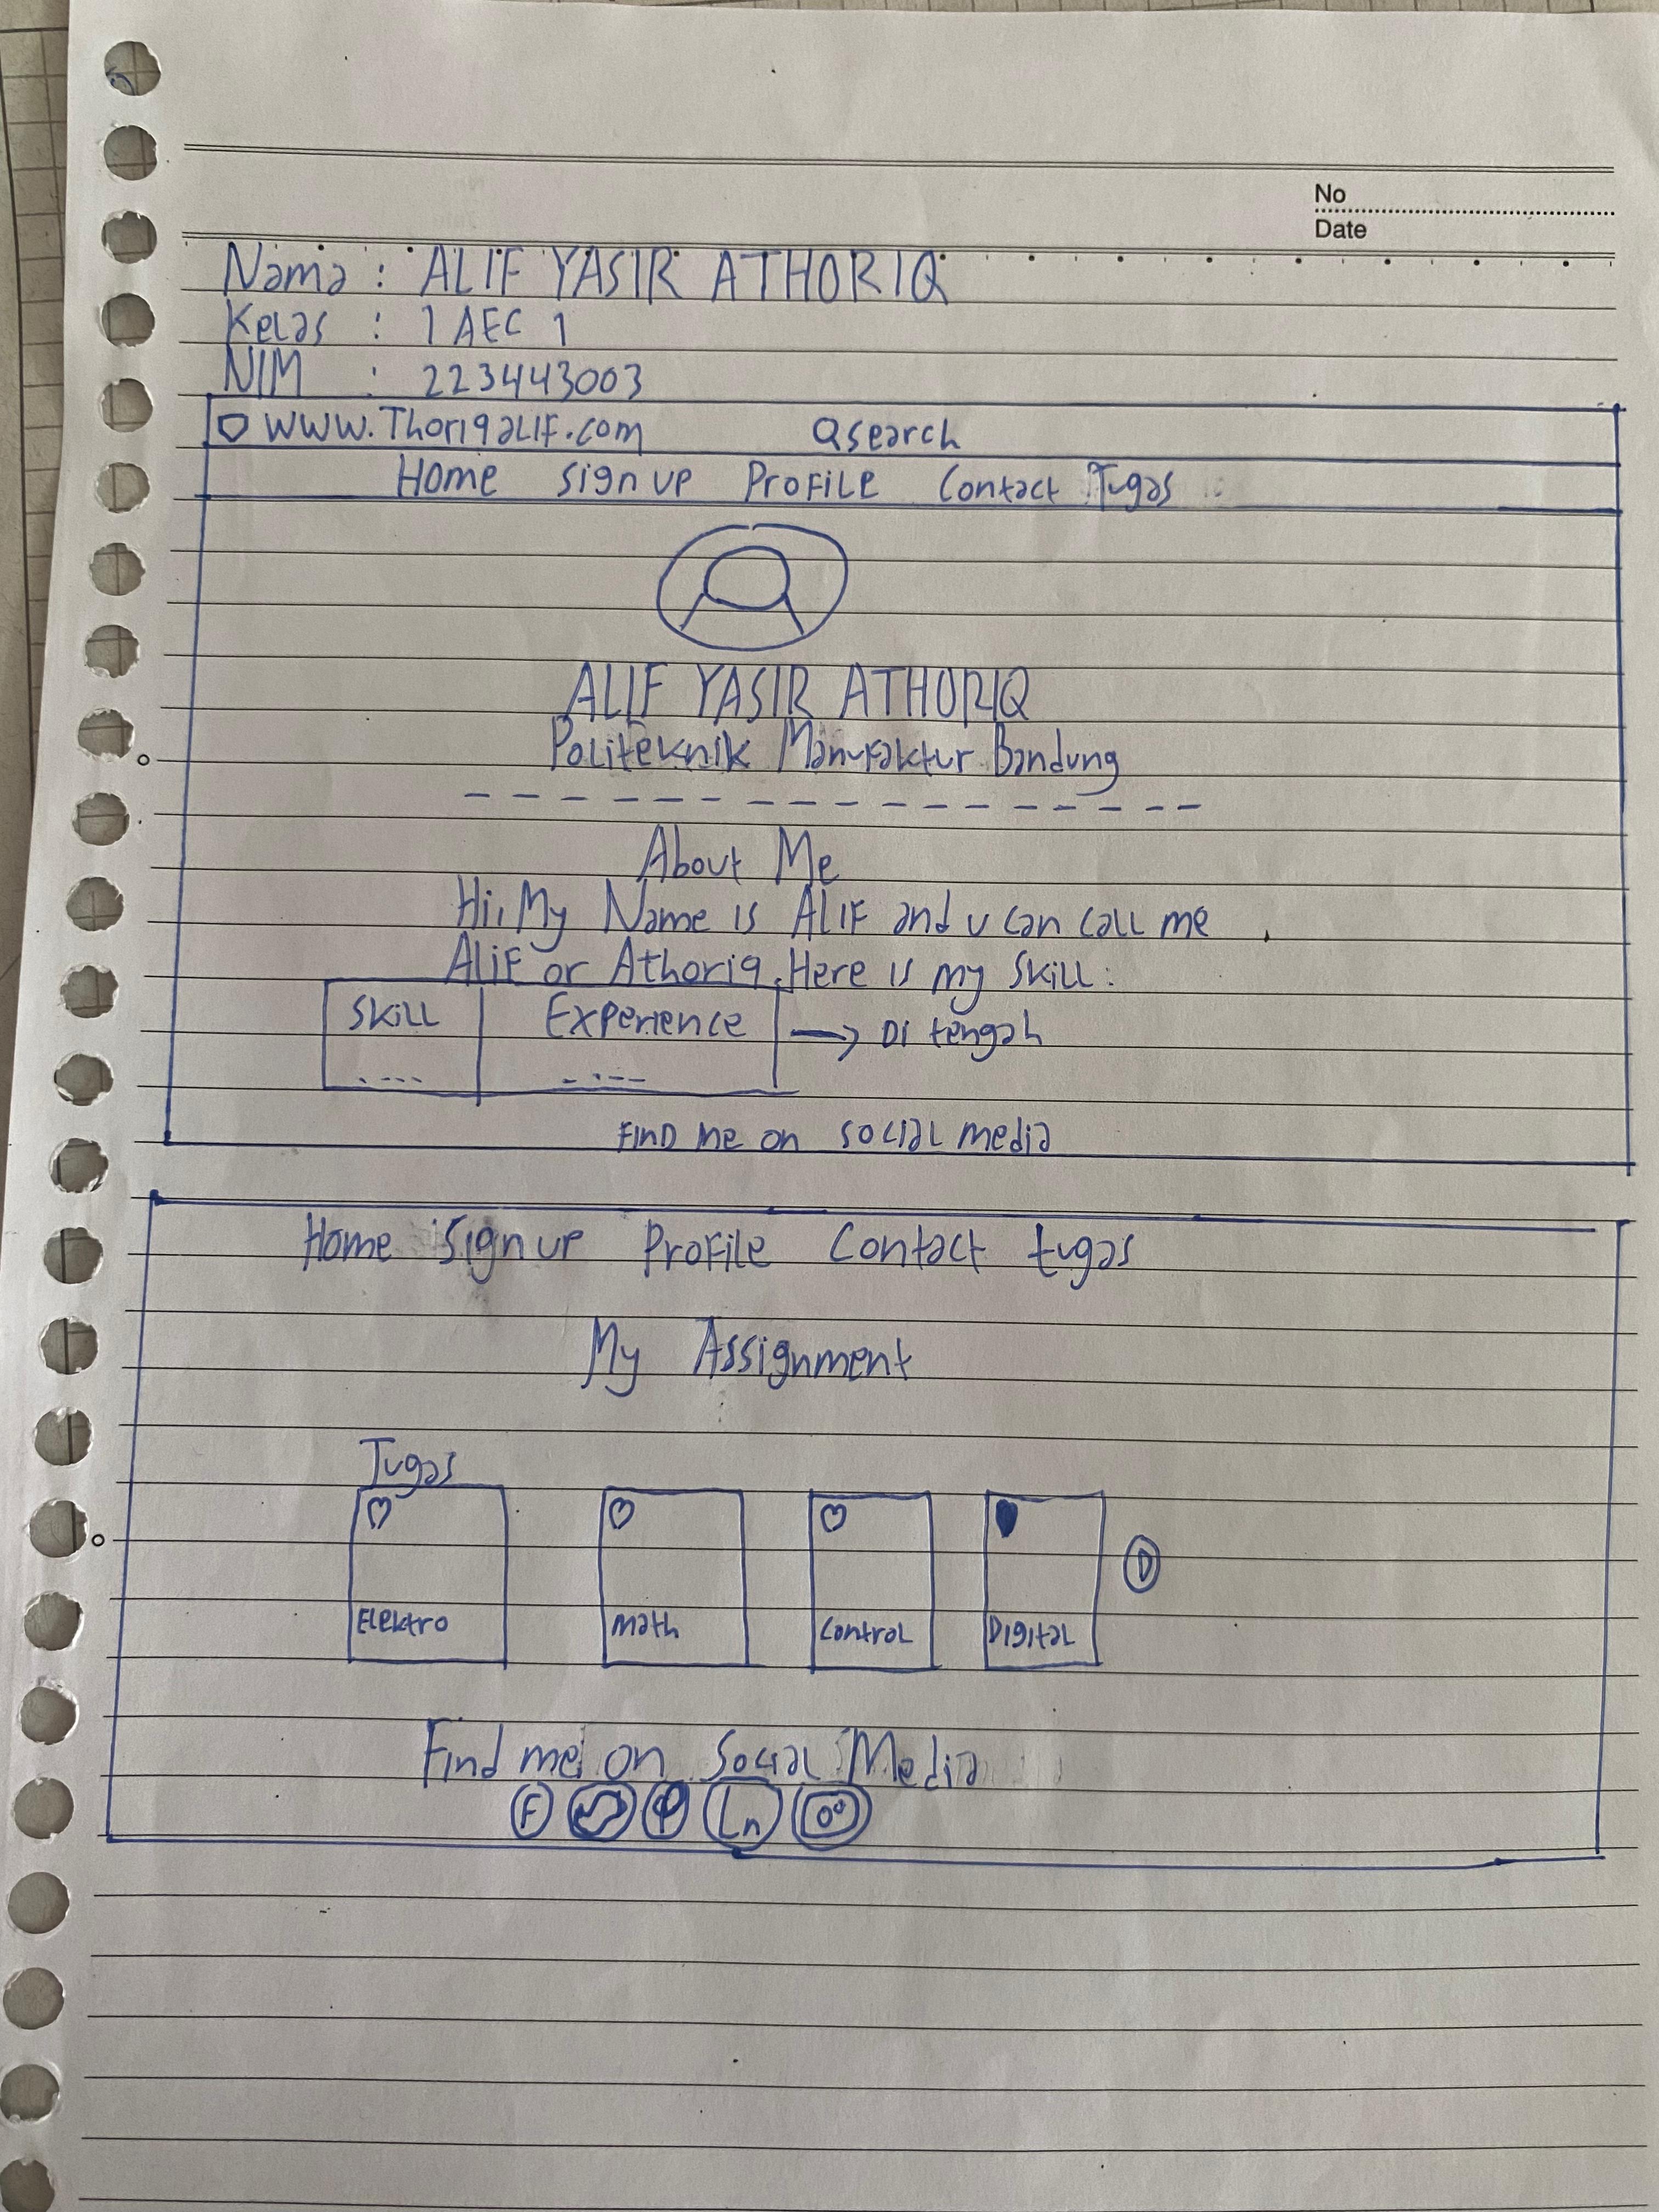 No
Date
Nama : ALIF YASIR ATHORIQ
Kelas : 1 AEC 1
NIM : 223443003
www.ThoriqaLIF.com Search
Home Sign up Profile Contact Tugas
ALIF YASIR ATHORIQ
Politeknik Manufaktur Bandung
About Me
Hi, My Name is ALIF and u can call me
Alif or Athoriq. Here is my skill :
Skill Experience → Di tengah
Find me on social media
Home Sign up Profile Contact tugas
My Assignment
Tugas
Elektro Math Control Digital
Find me on Social Media
F P Ln